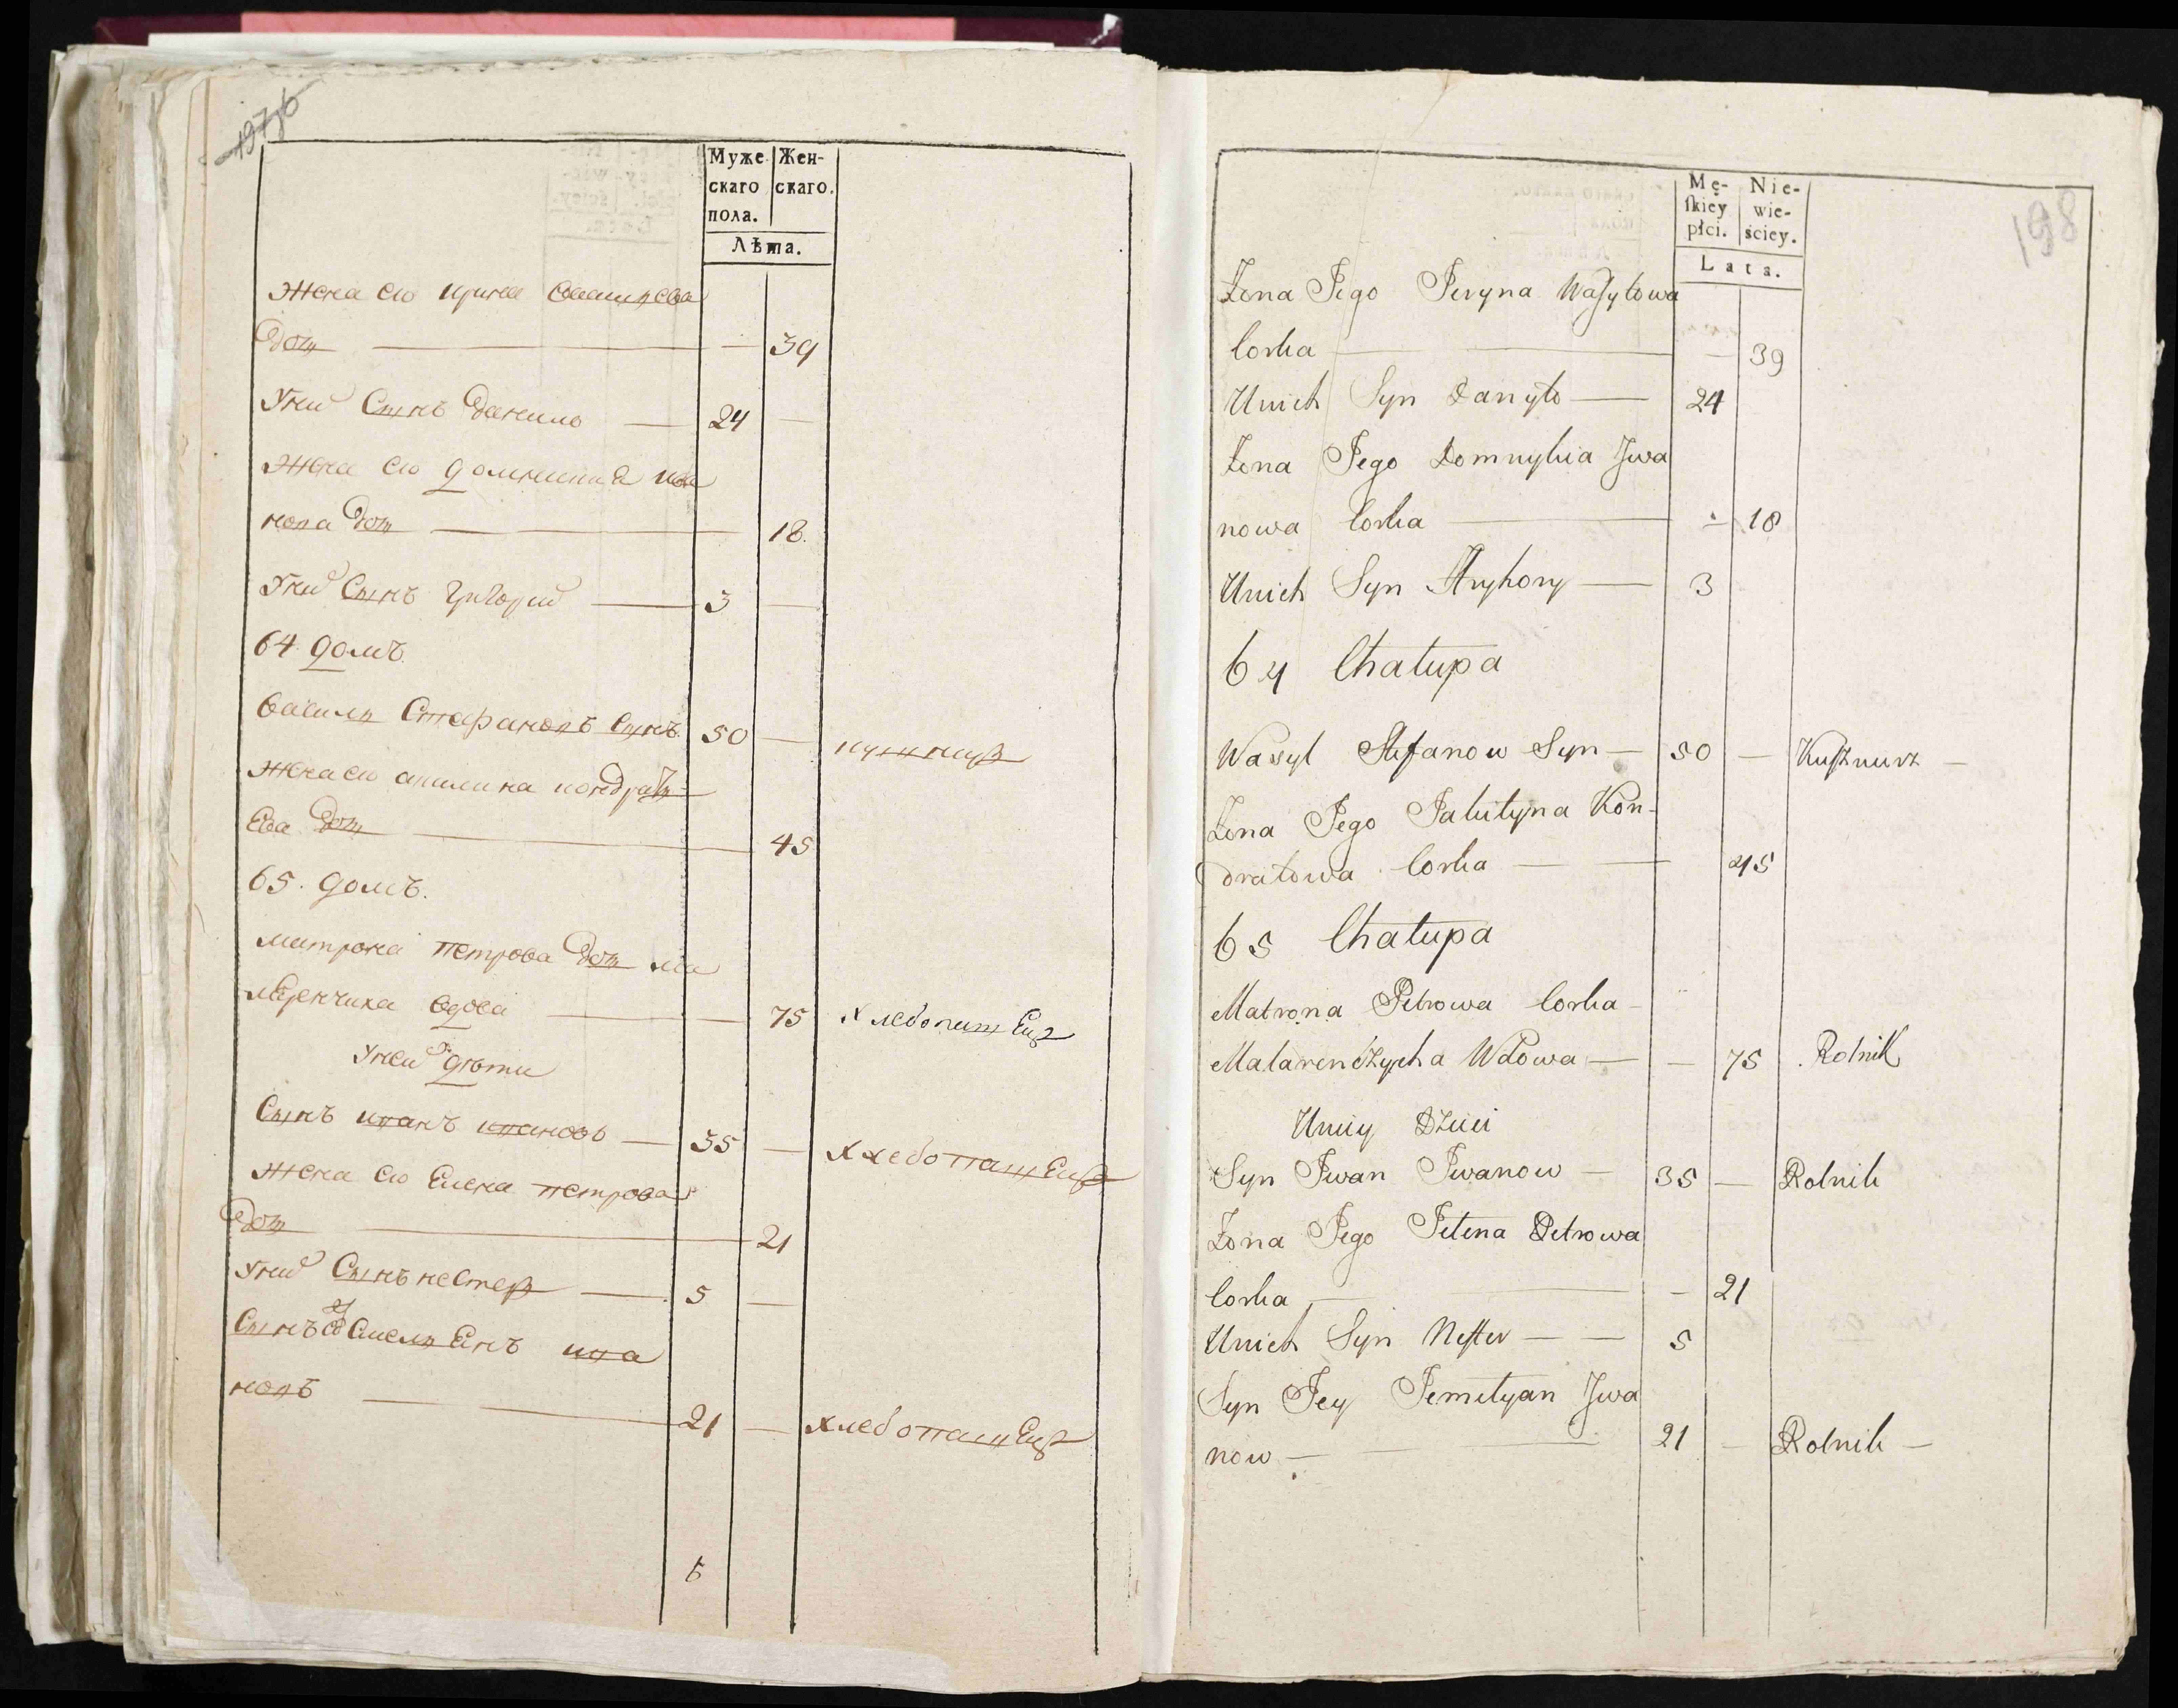 197об
Муже Жен-
скаго скаго.
пола.
Лѣта.
Жена его ирина василева
дочь — 39
Уних Сынъ данило — 24 —
Жена его домникиа ива
нова дочь — 18.
Уних Сынъ григорий — 3 —
64 домъ
василь Стефановъ Сынъ 50 — кушнирь
Жена его акилина кондрать-
ева дочь — 45
65. домъ.
матрона петрова дочь ма
ляренчиха вдова — 75 хлебопашец
Уней дѣти
Сынъ иванъ ивановъ — 35 — хлебопашец
Жена его Елена петрова
дочь — 21
Уних Сынъ нестер — 5 —
Сынъ ея Емельянъ ива
новъ — 21 — хлебопашец
5
198
Mę- Nie-
skiey wie-
płci. ściey.
Lata.
Żona Jego Jeryna Wasylowa
Corka — — 39
Unich Syn Danyło — 24
Żona Jego Domnykia Jwa
nowa Corka — — 18
Unich Syn Hryhory — 3
64 Chałupa
Wasyl Stefanow Syn — 50 — Kusznierz —
Żona Jego Jakulyna Kon-
dratowa Corka — — 45
65 Chałupa
Matrona Petrowa Corka —
Malarenczycha Wdowa — — 75 Rolnik
Uniey Dzieci
Syn Jwan Jwanow — 35 — Rolnik
Żona Jego Jelena Petrowa
Corka — — 21
Unich Syn Nester — — 5
Syn Jey Jemelyan Jwa
now — — 21 — Rolnik —